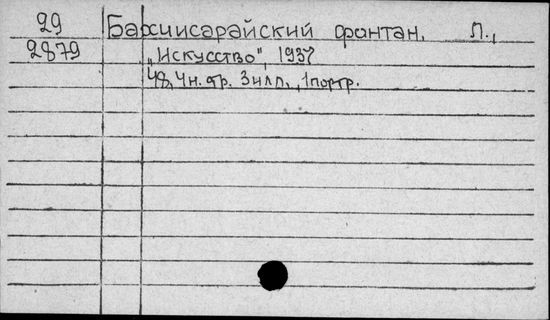 29 Бахчисарайский фонтан. Л.,
2879 „Искусство", 1937
48, 4 н. стр. 3 илл., 1 портр.